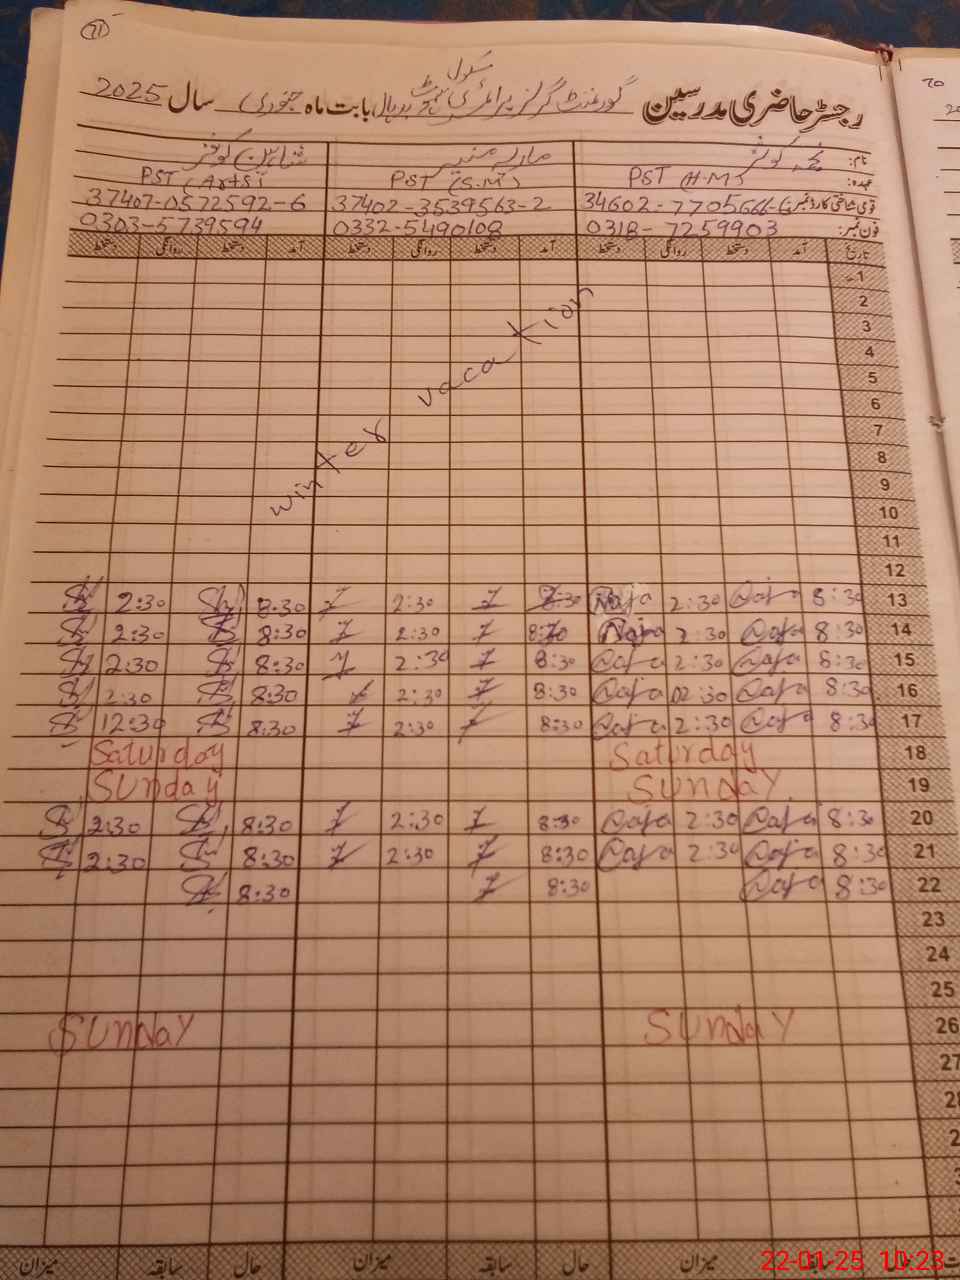 11
سکول
رجسٹر حاضری مدرسین گورنمنٹ گرلز پرائمری بابت ماہ جنوری سال 2025
نام: نجمہ کوثر ماریہ منیر شاہین کوثر
عہدہ: PST (H.M) PST (S.M) PST (Arts)
قومی شناختی کارڈ نمبر: 34602-7705666-6 37402-3539563-2 37407-0572592-6
فون نمبر: 0318-7259903 0332-5490108 0303-5739594
تاریخ آمد دستخط روانگی دستخط آمد دستخط روانگی دستخط آمد دستخط روانگی دستخط
1
2
3
4
5
6
7
8
9
10
11
12
winter vacation
13 8:30 2:30 8:30 2:30 8:30 2:30
14 8:30 2:30 8:30 2:30 8:30 2:30
15 8:30 2:30 8:30 2:30 8:30 2:30
16 8:30 02:30 8:30 2:30 8:30 2:30
17 8:30 2:30 8:30 2:30 8:30 12:30
18 Saturday Saturday
19 Sunday Sunday
20 8:30 2:30 8:30 2:30 8:30 2:30
21 8:30 2:30 8:30 2:30 8:30 2:30
22 8:30 8:30 8:30
23
24
25
26 Sunday Sunday
27
حال سابقہ میزان حال سابقہ میزان حال سابقہ میزان
22-01-25 10:23